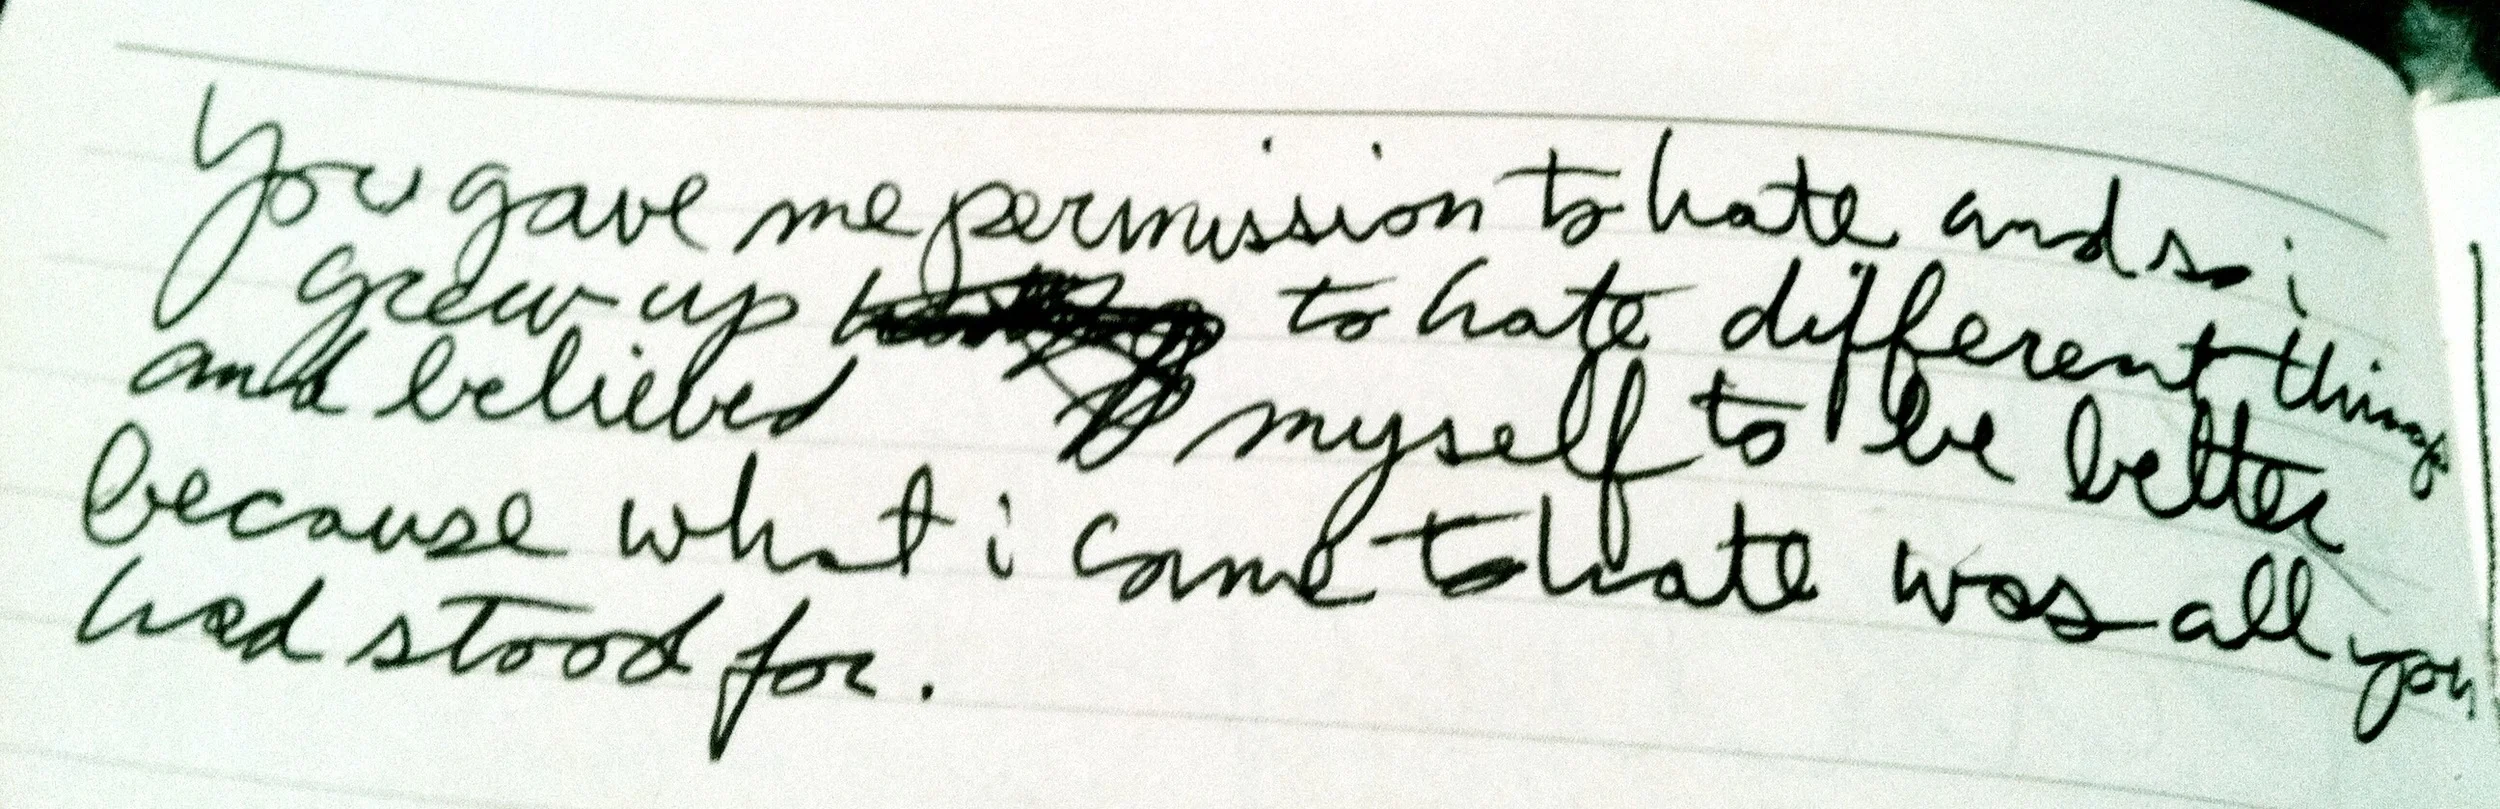 You gave me permission to hate and so i
grew up to hate different things
and believed myself to be better
because what i came to hate was all you
had stood for.